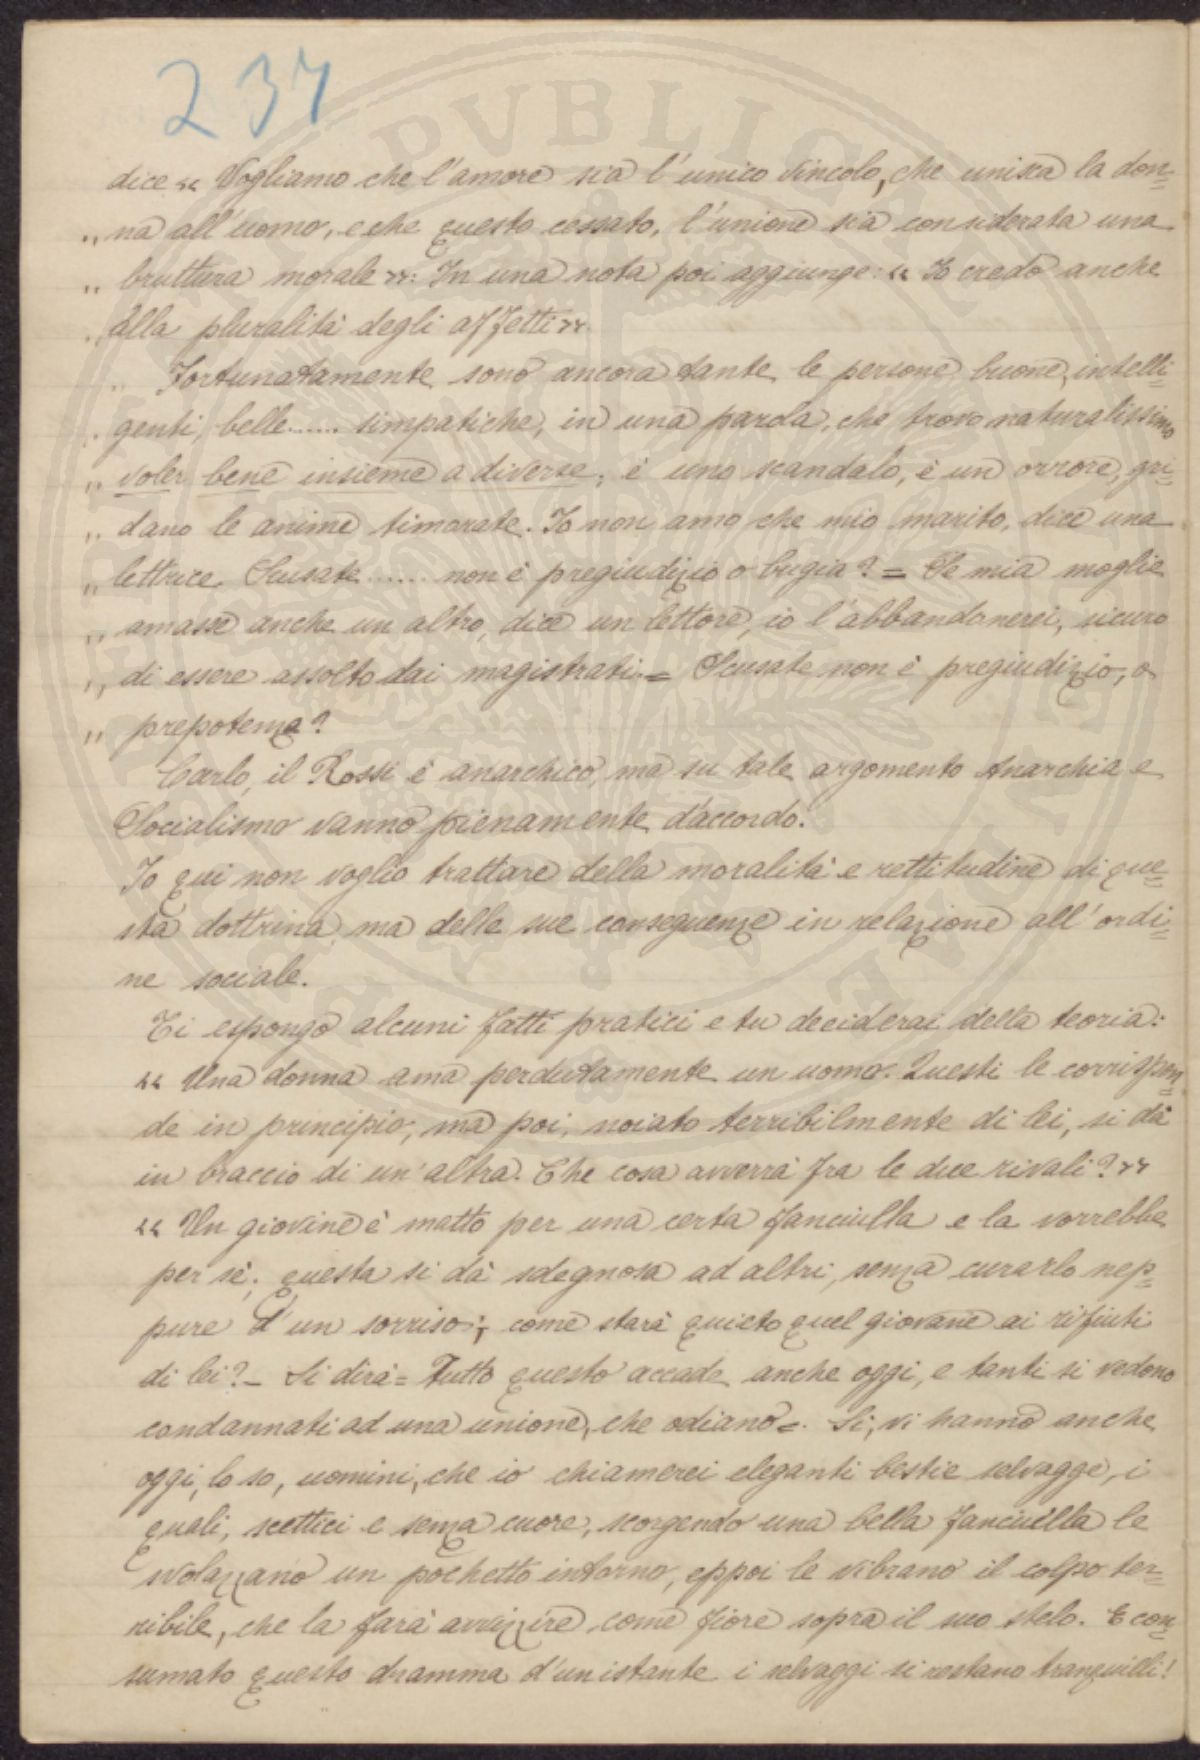 237
dice « Vogliamo che l'amore sia l'unico vincolo, che unisca la don=
„ na all'uomo, e che questo cessato, l'unione sia considerata una
„ bruttura morale »: In una nota poi aggiunge: « Io credo anche
„ alla pluralità degli affetti »
„ Fortunatamente sono ancora tante le persone buone, intelli=
„ genti, belle...... simpatiche, in una parola, che trovo naturalissimo
„ voler bene insieme a diverse; è uno scandalo, è un orrore, gri=
„ dano le anime timorate. Io non amo che mio marito, dice una
„ lettrice. Scusate...... non è pregiudizio o bugia? = Se mia moglie
„ amasse anche un altro, dice un lettore, io l'abbandonerei, sicuro
„ di essere assolto dai magistrati = Scusate non è pregiudizio, o
„ prepotenza?
Carlo, il Rossi è anarchico, ma su tale argomento Anarchia e
Socialismo vanno pienamente d'accordo.
Io qui non voglio trattare della moralità e rettitudine di que=
sta dottrina, ma delle sue conseguenze in relazione all'ordi=
ne sociale.
Ti espongo alcuni fatti pratici e tu deciderai della teoria:
« Una donna ama perdutamente un uomo. Questi le corrispon=
de in principio, ma poi, noiato terribilmente di lei, si dà
in braccio di un'altra. Che cosa avverrà fra le due rivali? »
« Un giovine è matto per una certa fanciulla e la vorrebbe
per sè; questa si dà sdegnosa ad altri, senza curarlo nep=
pure d'un sorriso; come starà quieto quel giovane ai rifiuti
di lei? - Si dirà = Tutto questo accade anche oggi, e tanti si vedono
condannati ad una unione, che odiano =. Si, vi hanno anche
oggi, lo so, uomini, che io chiamerei eleganti bestie selvagge, i
quali, scettici e senza cuore, scorgendo una bella fanciulla le
svolazzano un pochetto intorno, eppoi le vibrano il colpo ter=
ribile, che la farà avvizzire come fiore sopra il suo stelo. E con=
sumato questo dramma d'un istante i selvaggi si restano tranquilli!